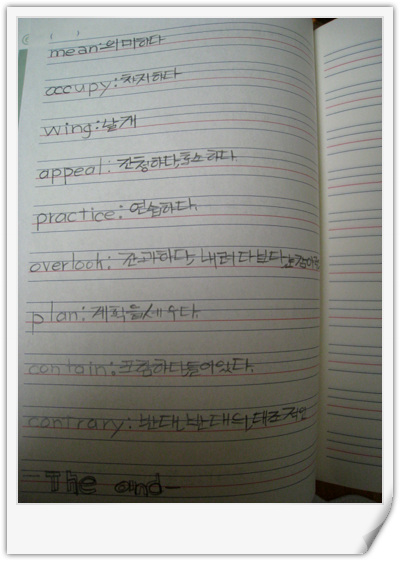 mean:의미하다
occupy:차지하다
wing:날개
appeal:간청하다,호소하다
practice:연습하다.
overlook:간과하다, 내려다보다,
plan:계획을세우다.
contain:포함하다,들어있다.
contrary:반대,반대의,대조적인
-The and-